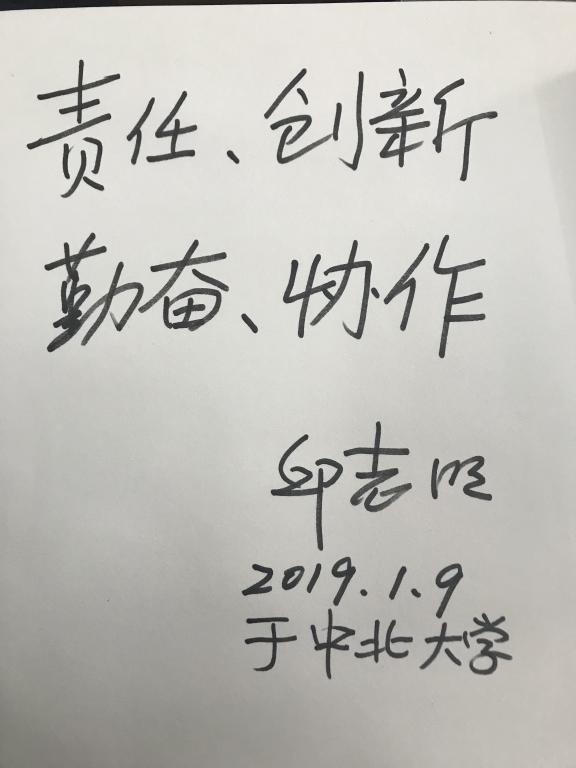 责任、创新
勤奋、协作
邱志明
2019.1.9
于中北大学